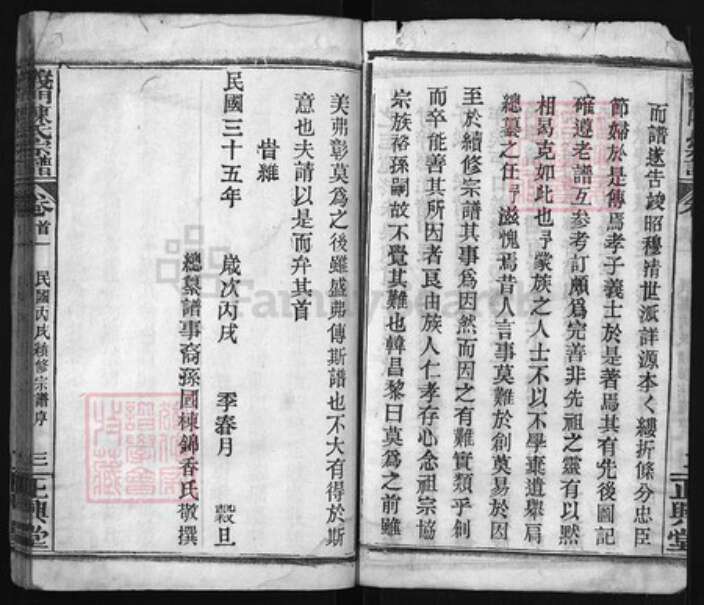 而譜遂告竣昭穆清世派詳源本々縷折條分忠臣
節婦於是傳焉孝子義士於是著焉其有先後圖記
確遵老譜互參考訂頗爲完善非先祖之靈有以黙
相曷克如此也予蒙族之人士不以不學棄遺舉肩
總纂之任予滋愧焉昔人言事莫難於創莫易於因
至於續修宗譜其事爲因然而因之有難實類乎創
而卒能善其所因者良由族人仁孝存心念祖宗協
宗族裕孫嗣故不覺其難也韓昌黎曰莫爲之前雖
美弗彰莫爲之後雖盛弗傳斯譜也不大有得於斯
意也夫請以是而弁其首
旹維
民國三十五年 歲次丙戌 季春月 穀旦
總纂譜事裔孫國棟錦香氏敬撰
義門陳氏宗譜 卷首一 民國丙戌續修宗譜序 三 正興堂
正興堂
FamilySearch